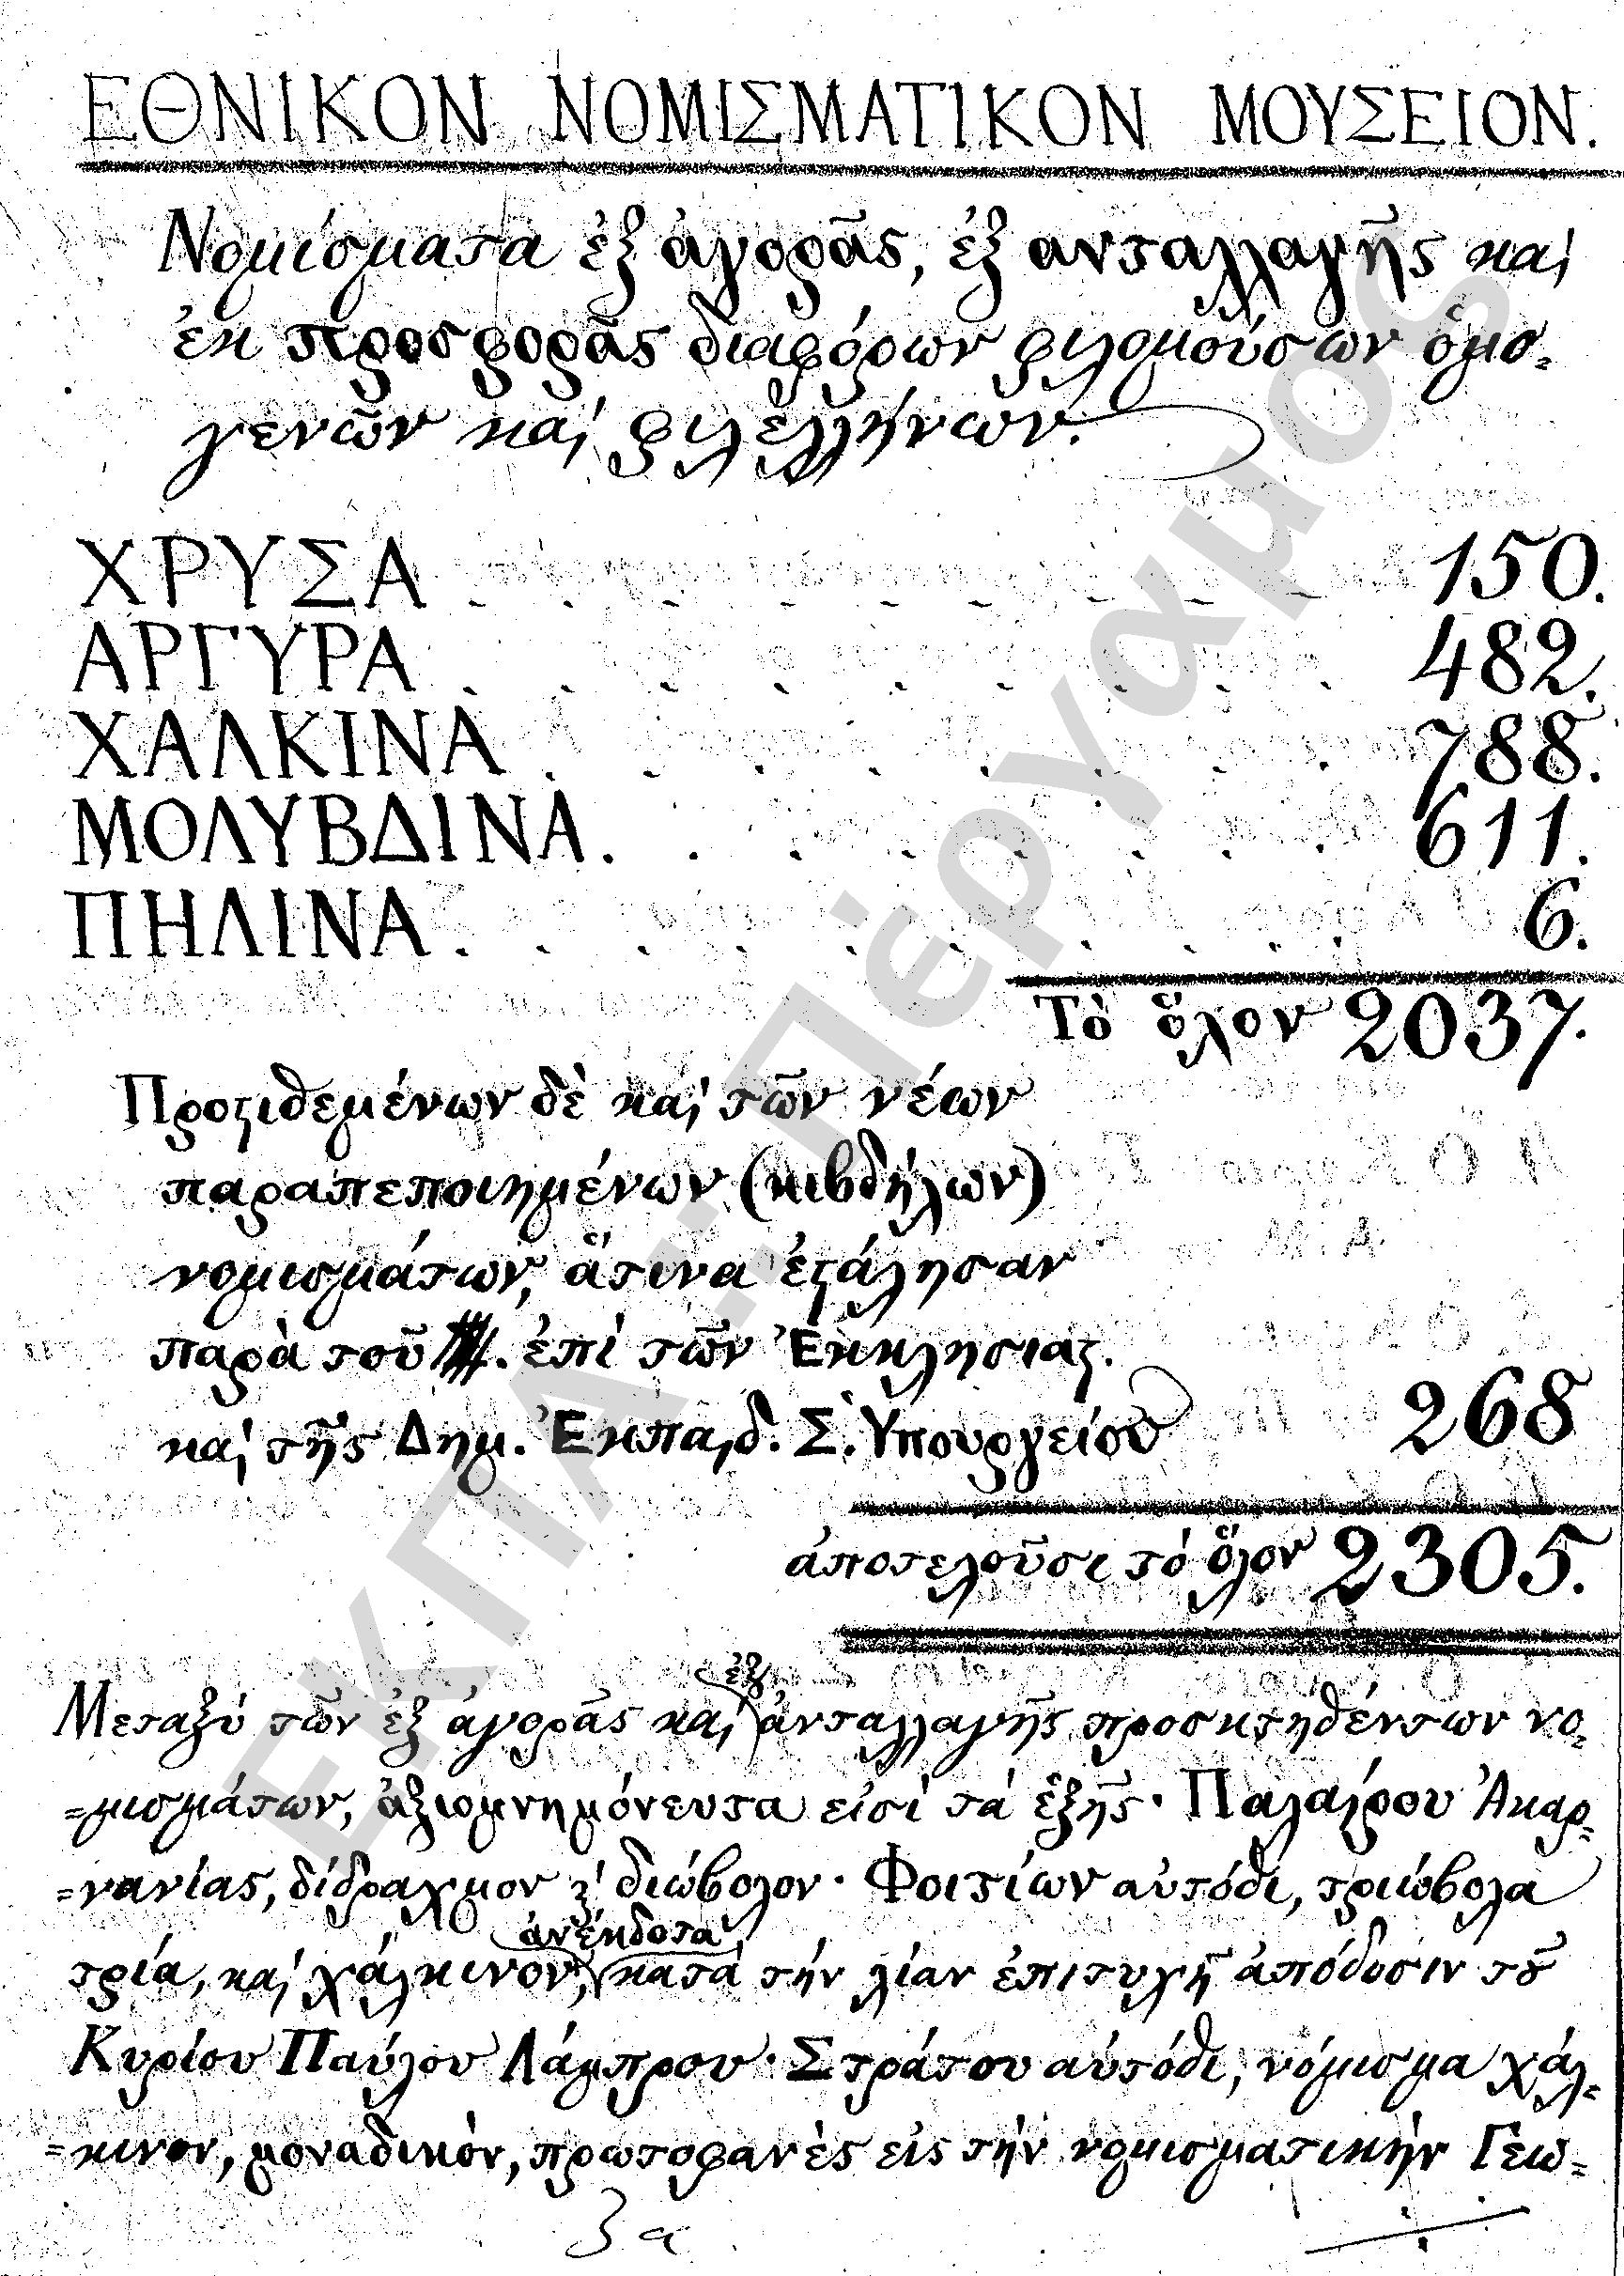 ΕΘΝΙΚΟΝ ΝΟΜΙΣΜΑΤΙΚΟΝ ΜΟΥΣΕΙΟΝ.
Νομίσματα ἐξ ἀγορᾶς, ἐξ ανταλλαγῆς καὶ
ἐκ προσφορᾶς διαφόρων φιλομούσων ὁμο=
γενῶν καὶ φιλελλήνων.
ΧΡΥΣΑ . . . . . . . . . 150.
ΑΡΓΥΡΑ . . . . . . . . . 482.
ΧΑΛΚΙΝΑ . . . . . . . . 788.
ΜΟΛΥΒΔΙΝΑ. . . . . . . . 611.
ΠΗΛΙΝΑ. . . . . . . . . 6.
Τὸ ὅλον 2037.
Προςιθεμένων δὲ καὶ τῶν νέων
παραπεποιημένων (κιβδήλων)
νομισμάτων, ἅτινα ἐςάλησαν
παρὰ τοῦ . ἐπὶ τῶν Ἐκκλησιας.
καὶ τῆς Δημ. Ἐκπαιδ. Σ. Ὑπουργείου 268
ἀποτελοῦσι τὸ ὅλον 2305.
ἐξ
Μεταξὺ τῶν ἐξ ἀγορᾶς καὶ ἀνταλλαγῆς προσκτηθέντων νο=
=μισμάτων, ἀξιομνημόνευτα εἰσὶ τὰ ἑξῆς· Παλαίρου Ἀκαρ=
=νανίας, δίδραχμον ϗ διώβολον· Φοιτίων αὐτόθι, τριώβολα
ἀνέκδοτα
τρία, καὶ χάλκινον, κατὰ τὴν λίαν ἐπιτυχῆ ἀπόδοσιν τȣ͂
Κυρίου Παύλου Λάμπρου· Στράτου αὐτόθι, νόμισμα χάλ=
=κινον, μοναδικὸν, πρωτοφανὲς εἰς τὴν νομισματικὴν Γεω=
3α
ΕΚΠΑ::Πέργαμος